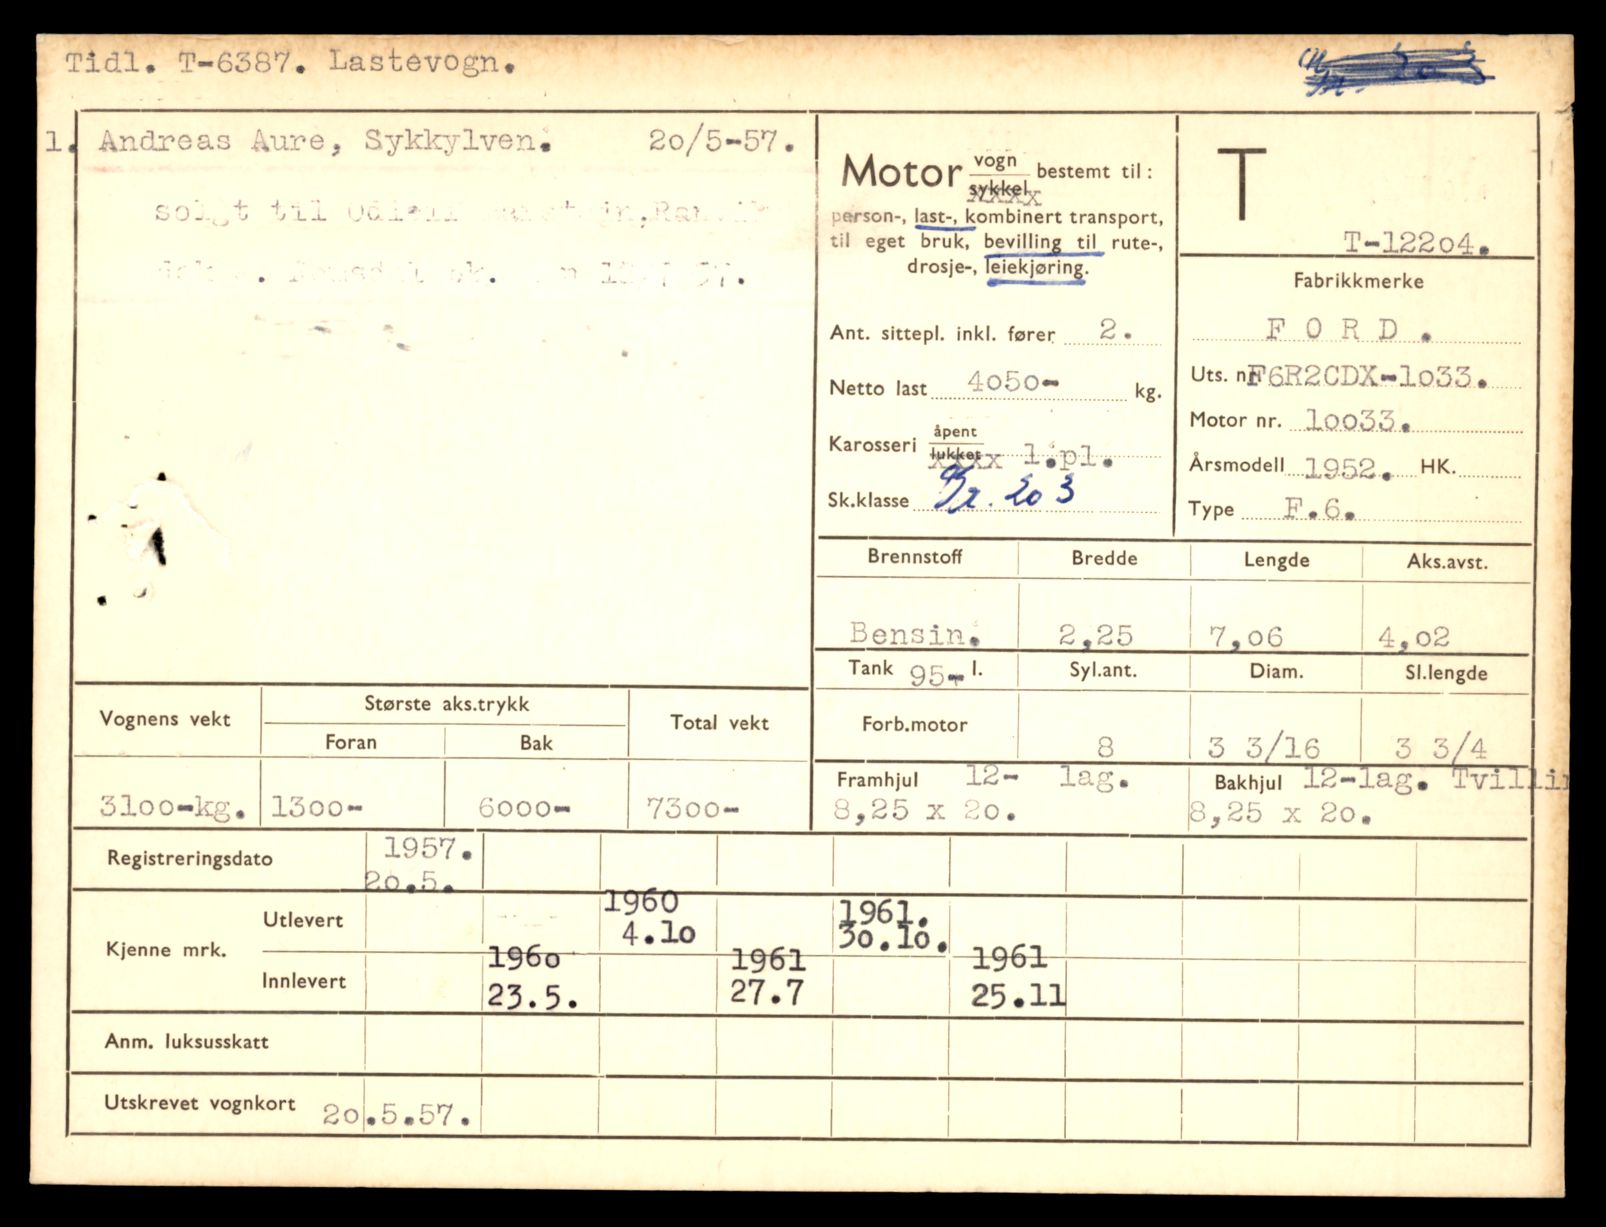 Tidl. T-6387. Lastevogn.
1. Andreas Aure, Sykkylven. 20/5-57.
solgt til
Motor vogn sykkel bestemt til:
person-, last-, kombinert transport,
til eget bruk, bevilling til rute-,
drosje-, leiekjøring.
T
T-12204.
Fabrikkmerke
F O R D .
Ant. sittepl. inkl. fører 2.
Netto last 4050- kg.
Karosseri åpent lukket l.pl.
Sk.klasse
Uts. nr F6R2CDX-1033.
Motor nr. 10033.
Årsmodell 1952. HK.
Type F.6.
Brennstoff Bredde Lengde Aks.avst.
Bensin. 2,25 7,06 4,02
Tank 95- l. Syl.ant. Diam. Sl.lengde
Forb.motor 8 3 3/16 3 3/4
Vognens vekt Største aks.trykk Total vekt
Foran Bak
3100-kg. 1300- 6000- 7300-
Framhjul 12- lag. Bakhjul 12-lag. Tvillin
8,25 x 20. 8,25 x 20.
Registreringsdato 1957.
20.5.
Kjenne mrk. Utlevert 1960 1961.
4.10 30.10.
Innlevert 1960 1961 1961
23.5. 27.7 25.11
Anm. luksusskatt
Utskrevet vognkort 20.5.57.